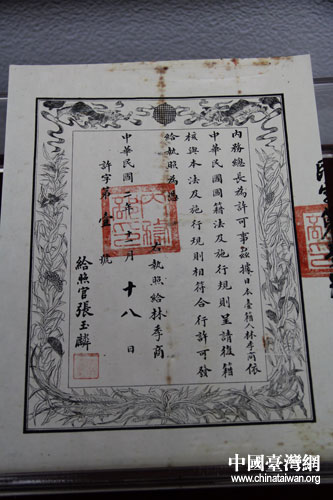 內務總長為許可事茲據日本臺籍人林季商依
中華民國國籍法及施行規則呈請復籍
核與本法及施行規則相符合行許可發
給執照為憑
右執照給林季商
中華民國二年十一月十八日
許字第壹號
給照官張玉麟
中國臺灣網
www.chinataiwan.org